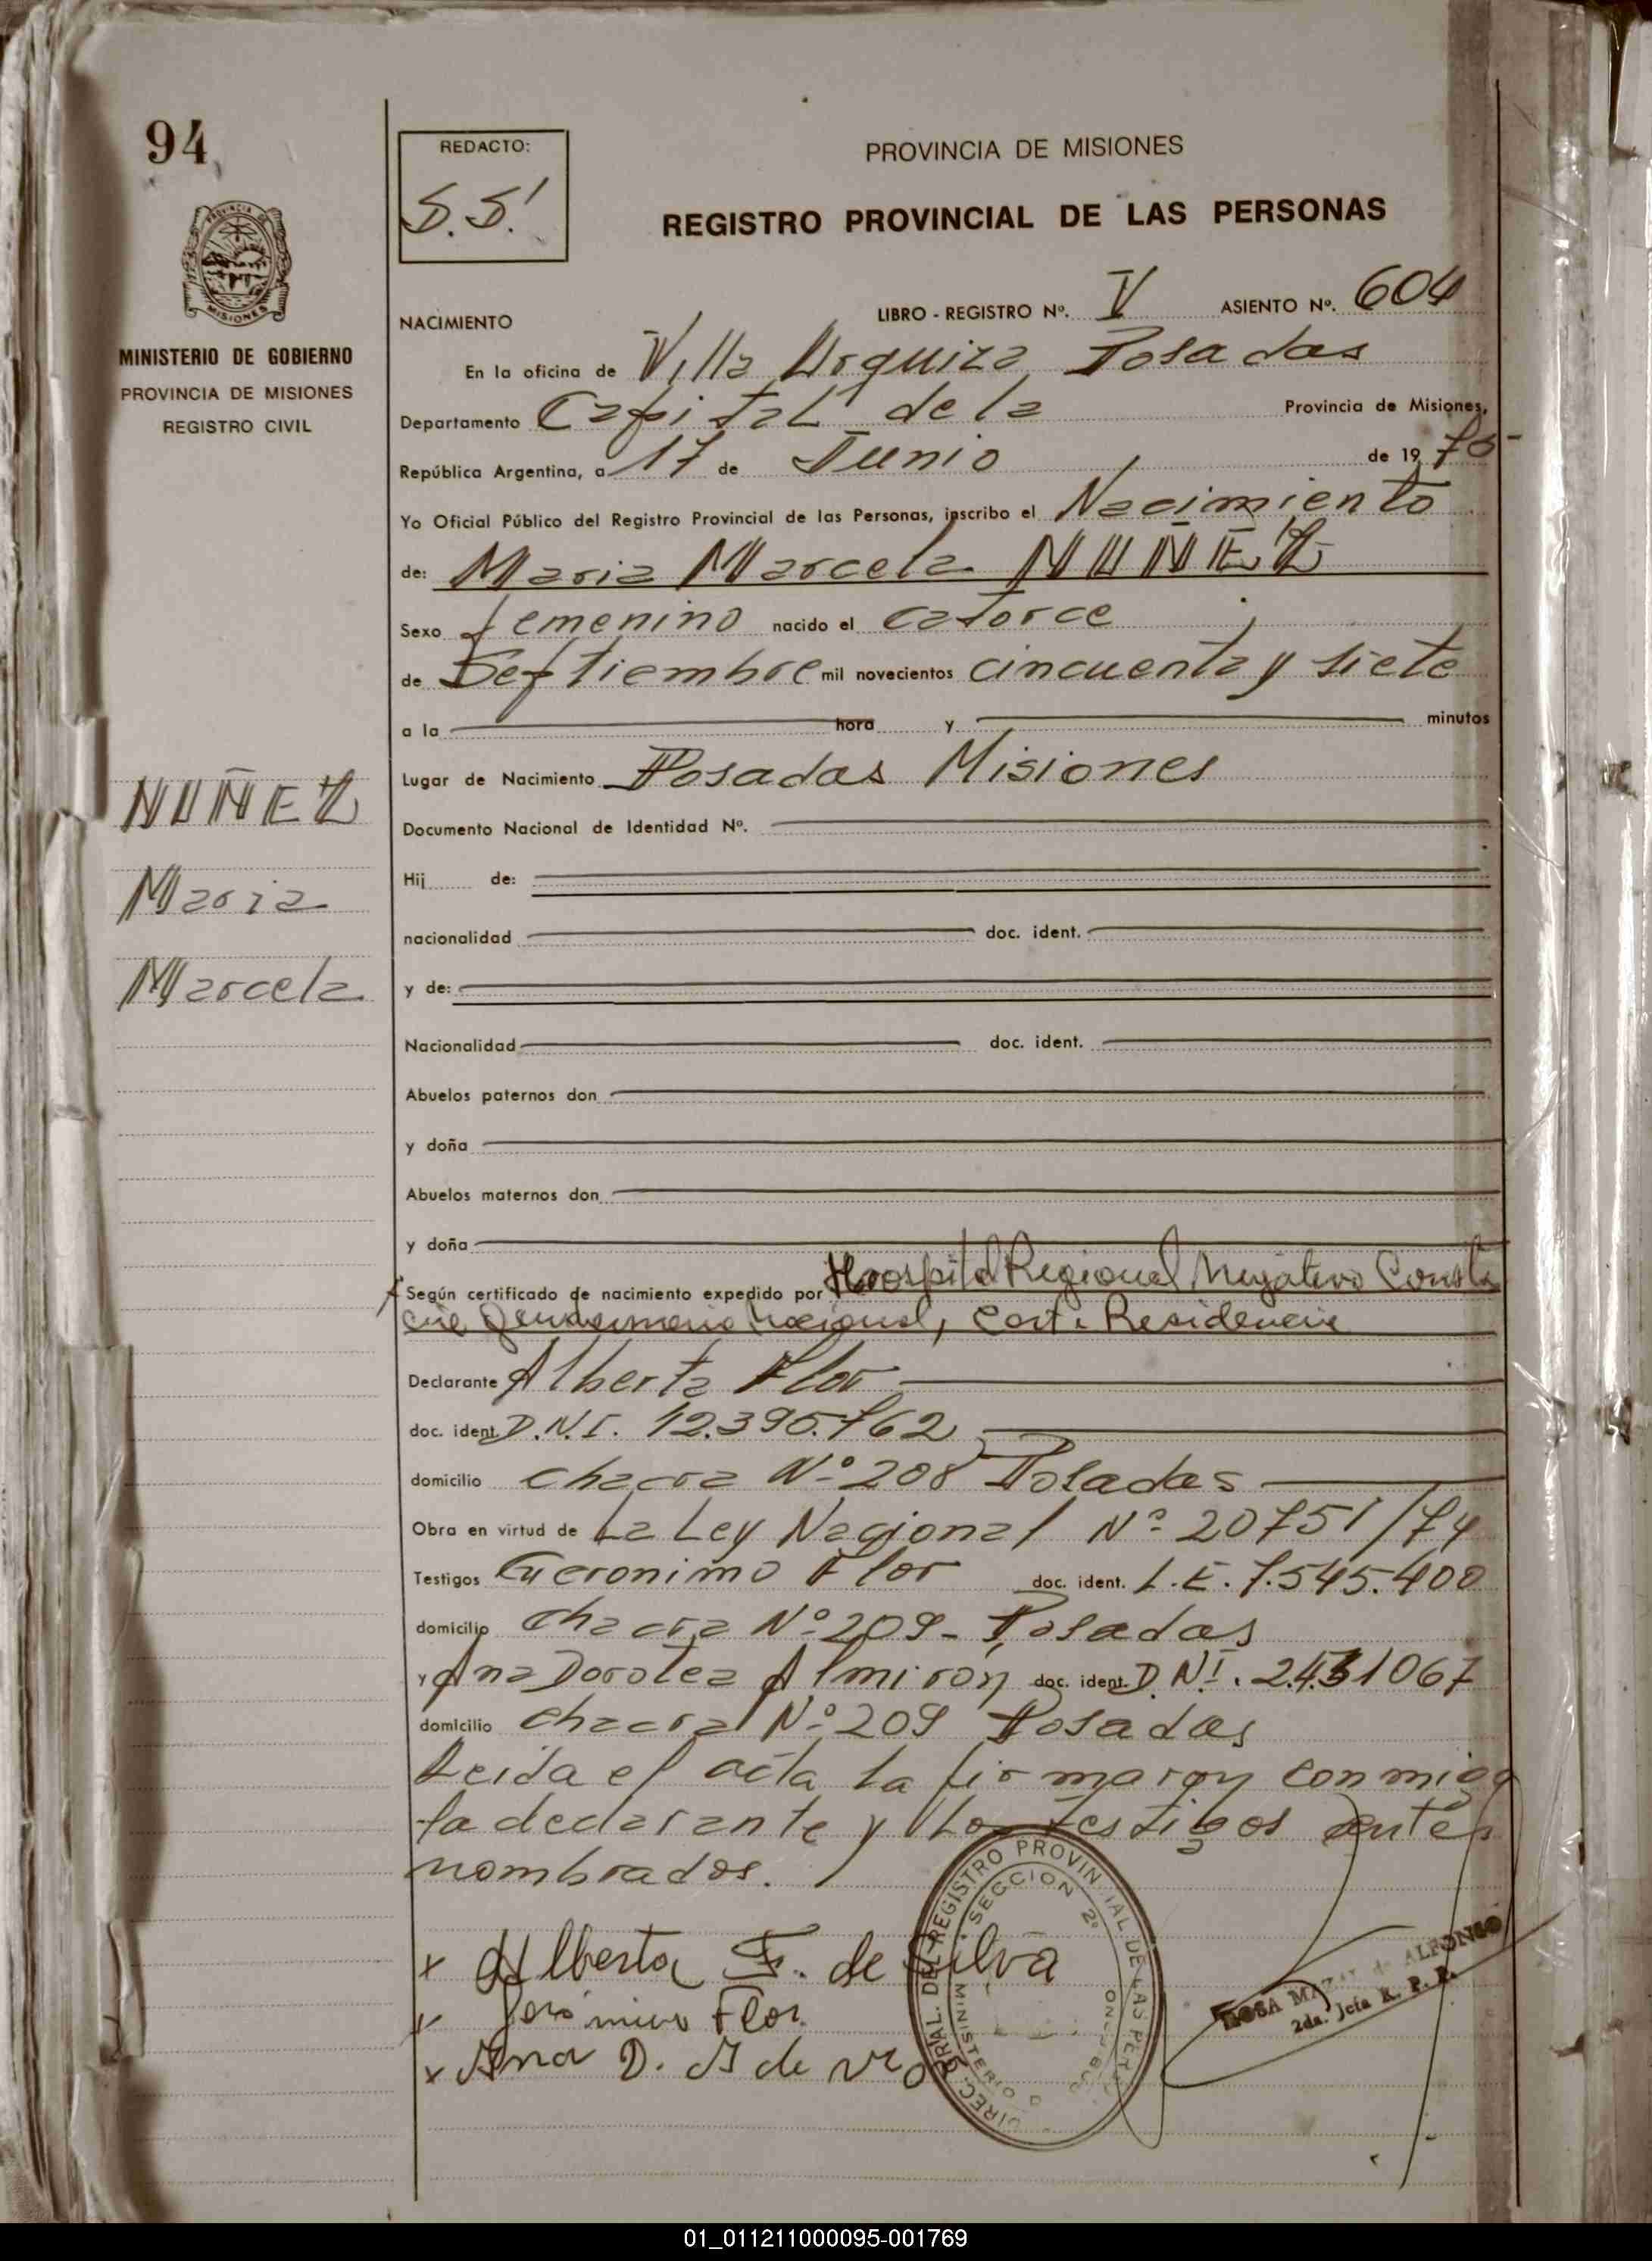 94
REDACTO:
S.S.
PROVINCIA DE MISIONES
REGISTRO PROVINCIAL DE LAS PERSONAS
PROVINCIA DE
MISIONES
MINISTERIO DE GOBIERNO
PROVINCIA DE MISIONES
REGISTRO CIVIL
NACIMIENTO LIBRO - REGISTRO Nº. V ASIENTO Nº. 604
En la oficina de Villa Urquiza Posadas
Departamento Capital de la Provincia de Misiones,
República Argentina, a 17 de Junio de 19
Yo Oficial Público del Registro Provincial de las Personas, inscribo el Nacimiento
de: Maria Marcela NUÑEZ
Sexo femenino nacido el catorce
de Septiembre mil novecientos cincuenta y siete
a la hora y minutos
Lugar de Nacimiento Posadas Misiones
NUÑEZ
Maria
Marcela
Documento Nacional de Identidad Nº.
Hij de:
nacionalidad doc. ident.
y de:
Nacionalidad doc. ident.
Abuelos paternos don
y doña
Abuelos maternos don
y doña
Según certificado de nacimiento expedido por Hospital Regional Negativo Consta
cia Gendarmeria Nacional, Cert. Residencia
Declarante Alberta Flor
doc. ident. D.N.I. 12.395.762
domicilio chacra Nº 208 Posadas
Obra en virtud de La Ley Nacional Nº 20751/74
Testigos Geronimo Flor doc. ident. L.E. 7.545.400
domicilio chacra Nº 209 - Posadas
y Ana Dorotea Almirón doc. ident. D.N.I. 2.431067
domicilio chacra Nº 209 Posadas
Leida el acta la firmaron conmigo
la declarante y los testigos antes
nombrados.
x Alberta F. de Silva
x Jerónimo Flor
x Ana D. A de
DIREC. GRAL. DEL REGISTRO PROVINCIAL DE LAS PERS
SECCION 2º
MINISTERIO D GOBIERNO
ROSA de ALFONSO
2da. Jefa R. P. P.
01_011211000095-001769